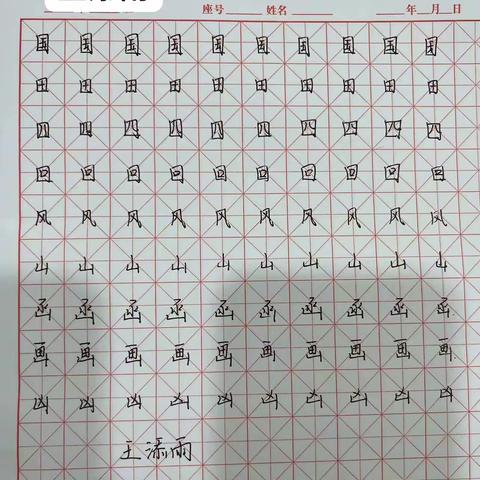 座号 姓名 年 月 日
国 国 国 国 国 国 国 国 国 国
田 田 田 田 田 田 田 田 田 田
四 四 四 四 四 四 四 四 四 四
回 回 回 回 回 回 回 回 回 回
风 风 风 风 风 风 风 风 风 风
山 山 山 山 山 山 山 山 山 山
函 函 函 函 函 函 函 函 函 函
画 画 画 画 画 画 画 画 画 画
凶 凶 凶 凶 凶 凶 凶 凶 凶 凶
王添雨